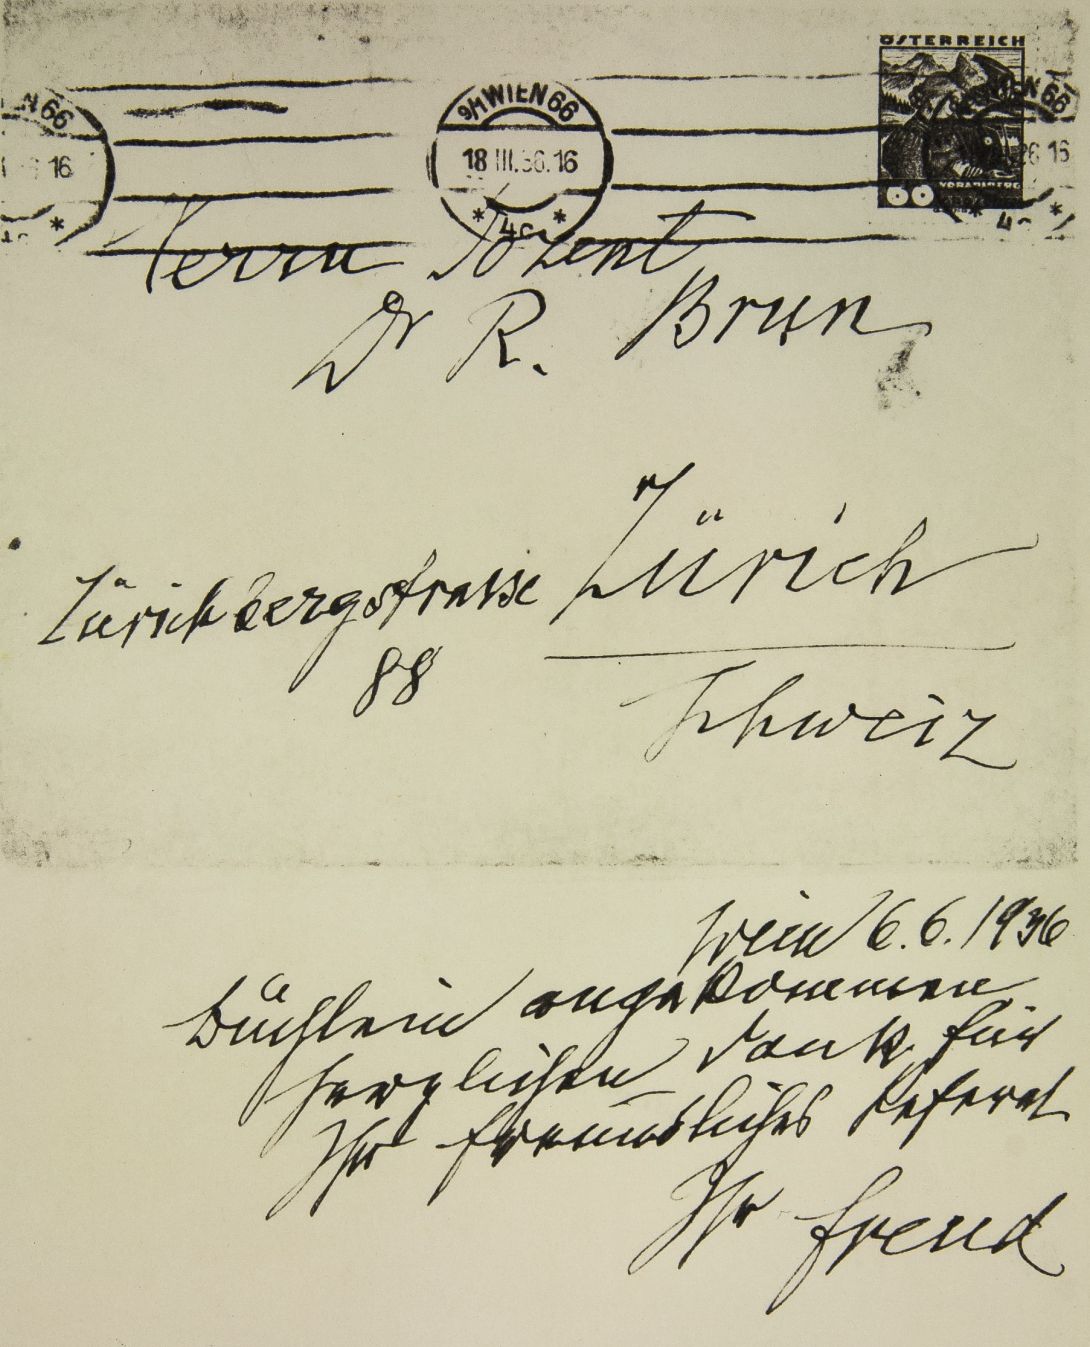 ÖSTERREICH
9H WIEN 66
18 III.36.16
* 4c *
60 VORARLBERG
Herrn Dozent
Dr R. Brun
Zürich
Zürichbergstrasse
88
Schweiz
Wien 6.6.1936
Büchlein angekommen.
herzlichen Dank für
Ihr freundliches Referat
Ihr Freud